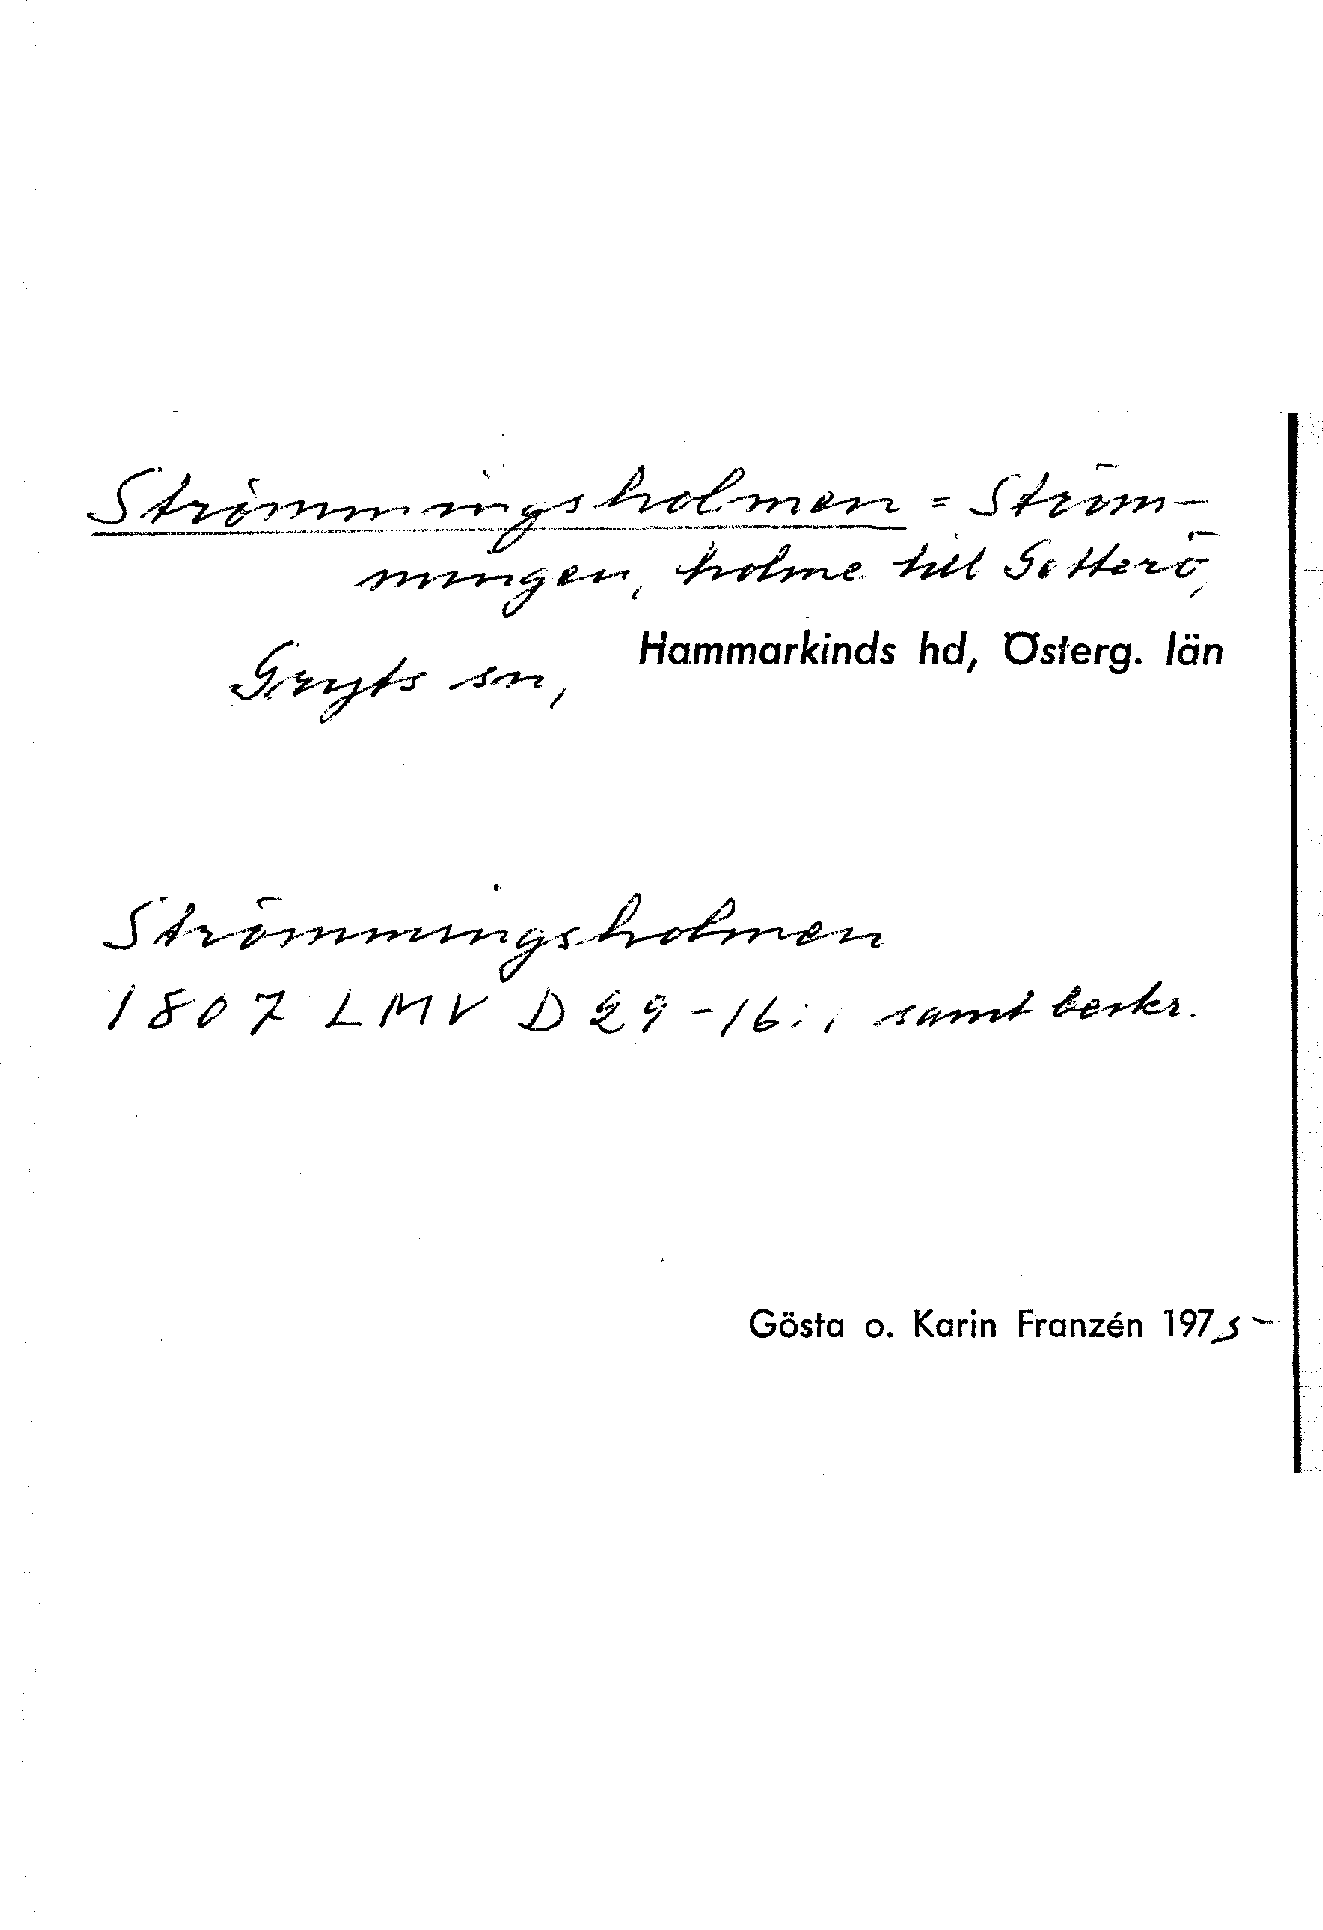 Strömmingsholmen = Ström-
mingen, holme till Getterö,
Gryts sn, Hammarkinds hd, Österg. län
Strömmingsholmen
1807 LMV D29-16:1 samt beskr.
Gösta o. Karin Franzén 1975